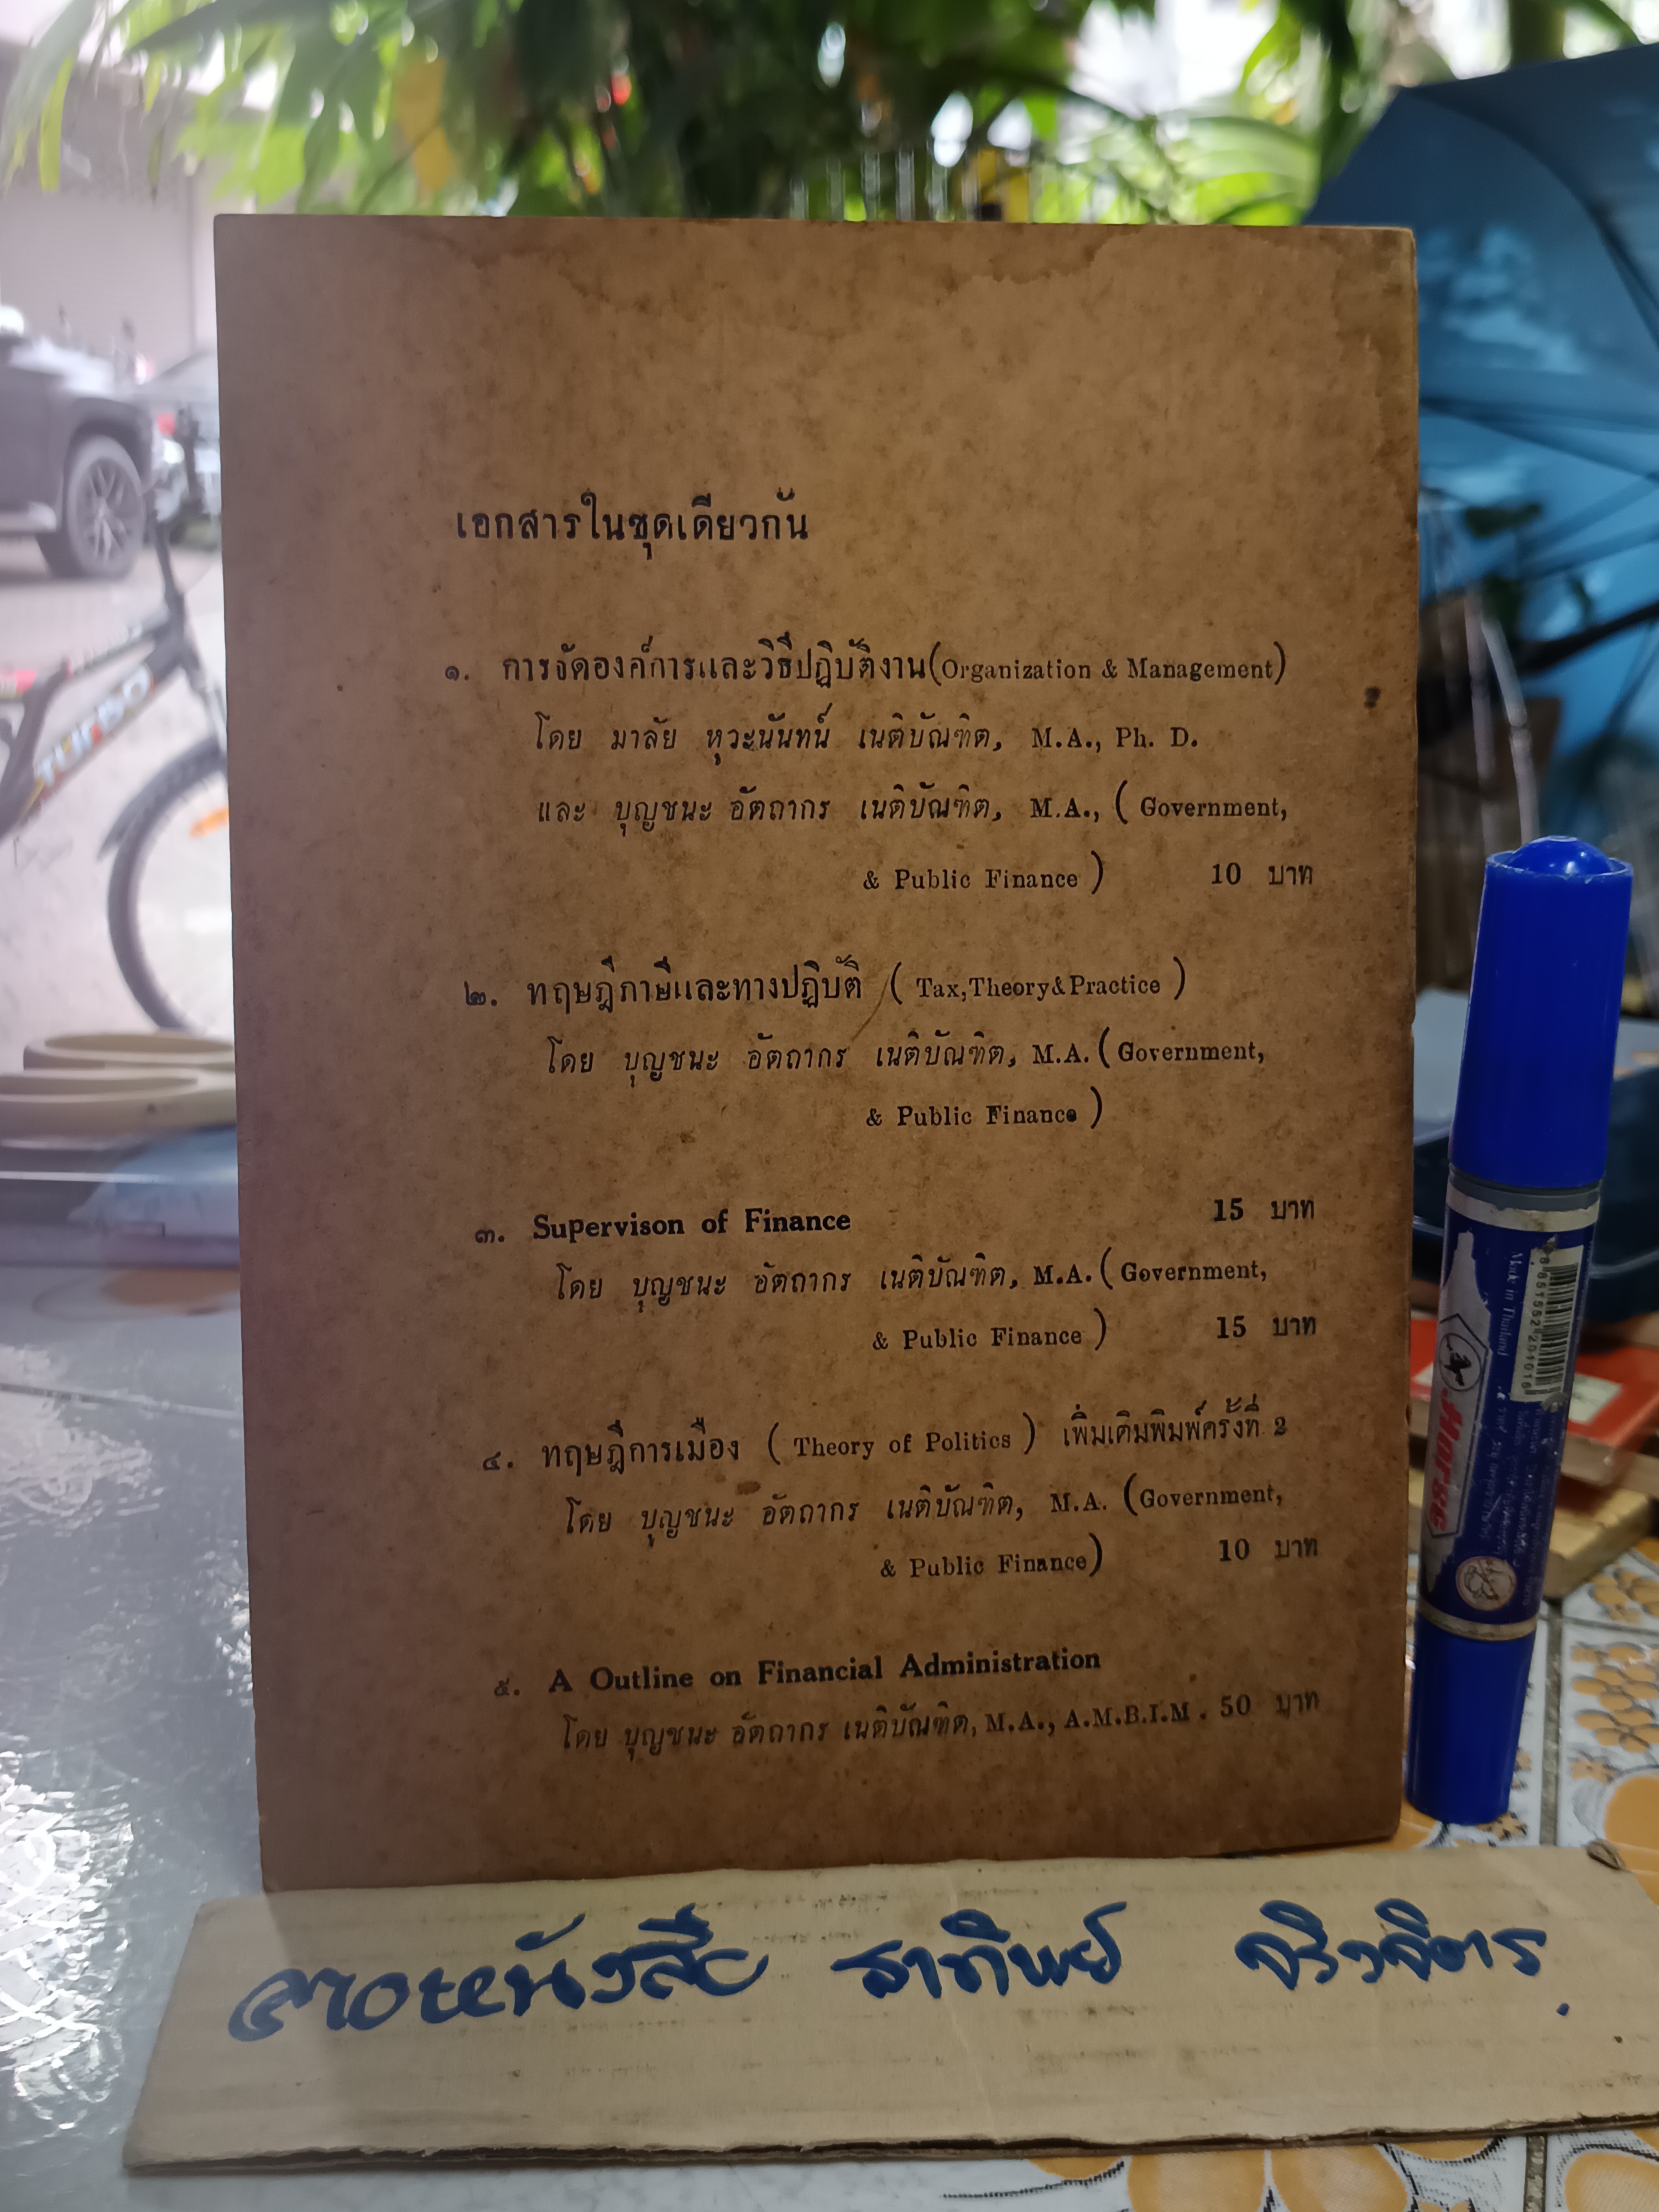 เอกสารในชุดเดียวกัน
๑. การจัดองค์การและวิธีปฏิบัติงาน(Organization & Management)
โดย มาลัย หุวะนันทน์ เนติบัณฑิต, M.A., Ph. D.
และ บุญชนะ อัตถากร เนติบัณฑิต, M.A., ( Government,
& Public Finance ) 10 บาท
๒. ทฤษฎีภาษีและทางปฏิบัติ ( Tax,Theory&Practice )
โดย บุญชนะ อัตถากร เนติบัณฑิต, M.A. ( Government,
& Public Finance )
15 บาท
๓. Supervison of Finance
โดย บุญชนะ อัตถากร เนติบัณฑิต, M.A. ( Government,
& Public Finance ) 15 บาท
๔. ทฤษฎีการเมือง ( Theory of Politics ) เพิ่มเติมพิมพ์ครั้งที่ 2
โดย บุญชนะ อัตถากร เนติบัณฑิต, M.A. (Government,
& Public Finance) 10 บาท
๕. A Outline on Financial Administration
โดย บุญชนะ อัตถากร เนติบัณฑิต, M.A., A.M.B.I.M . 50 บาท
TURBO
Made in Thailand
Horse